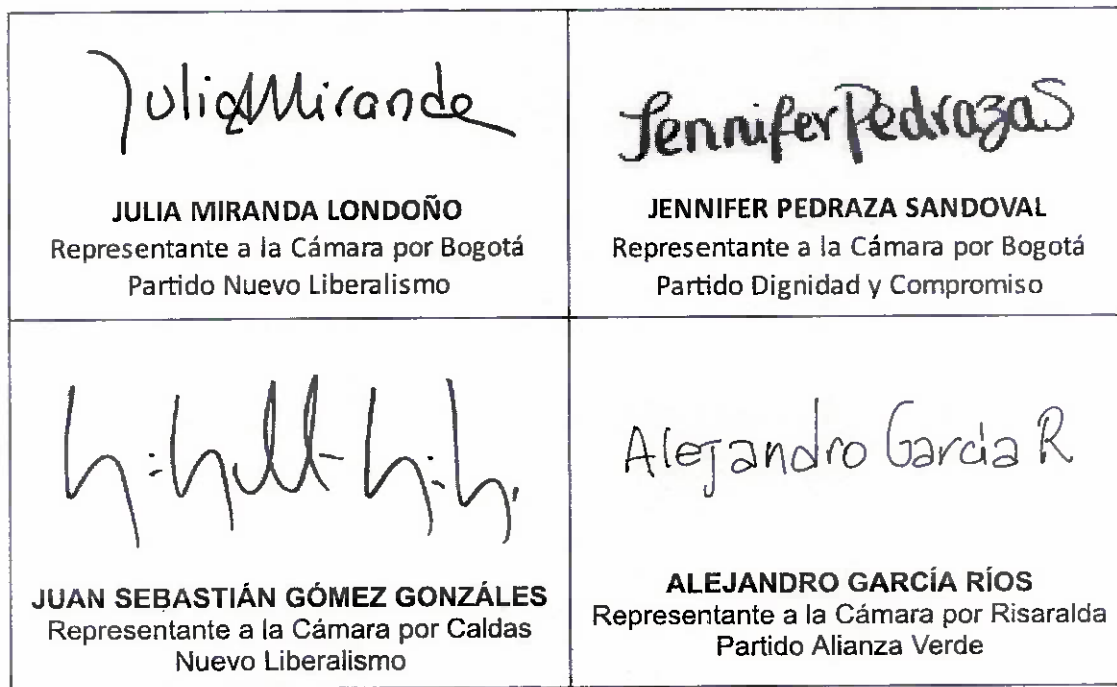 JuliaMiranda
JULIA MIRANDA LONDOÑO
Representante a la Cámara por Bogotá
Partido Nuevo Liberalismo
Jennifer Pedraza S
JENNIFER PEDRAZA SANDOVAL
Representante a la Cámara por Bogotá
Partido Dignidad y Compromiso
JUAN SEBASTIÁN GÓMEZ GONZÁLES
Representante a la Cámara por Caldas
Nuevo Liberalismo
Alejandro García R
ALEJANDRO GARCÍA RÍOS
Representante a la Cámara por Risaralda
Partido Alianza Verde